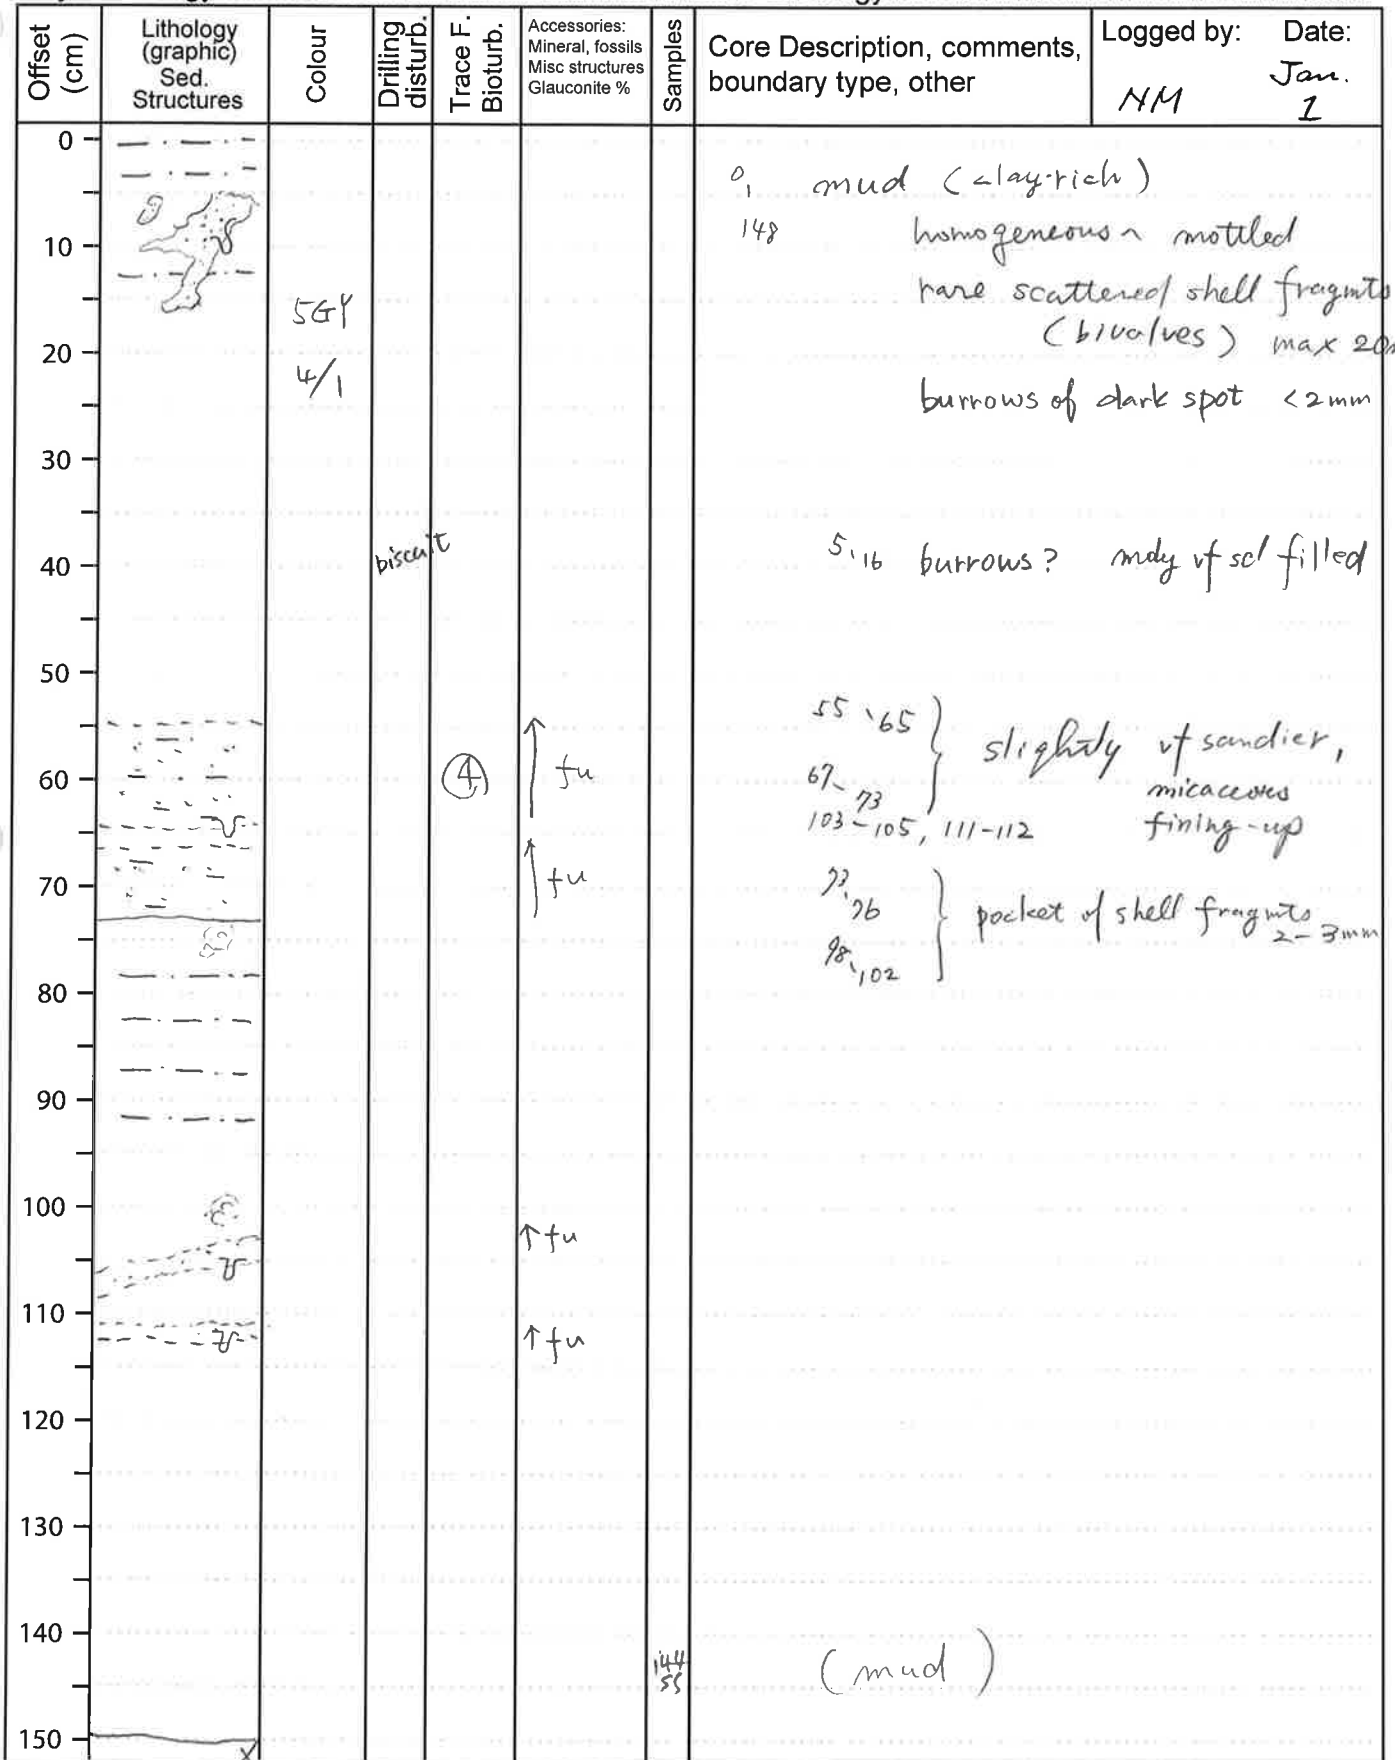 Offset (cm)
Lithology (graphic) Sed. Structures
Colour
Drilling disturb.
Trace F. Bioturb.
Accessories: Mineral, fossils Misc structures Glauconite %
Samples
Core Description, comments, boundary type, other
Logged by: NM
Date: Jan. 1
0
10
20
30
40
50
60
70
80
90
100
110
120
130
140
150
5GY
4/1
biscuit
4
fu
fu
↑ fu
↑ fu
144
SS
0, 148 mud (clay-rich)
homogeneous ~ mottled
rare scattered shell fragmts
(bivalves) max 20
burrows of dark spot <2mm
5, 16 burrows? mdy vf sd filled
55, 65
67 - 73
103-105, 111-112
slightly vf sandier,
micaceous
fining-up
73, 76
98, 102
pocket of shell fragmts
2-3mm
(mud)